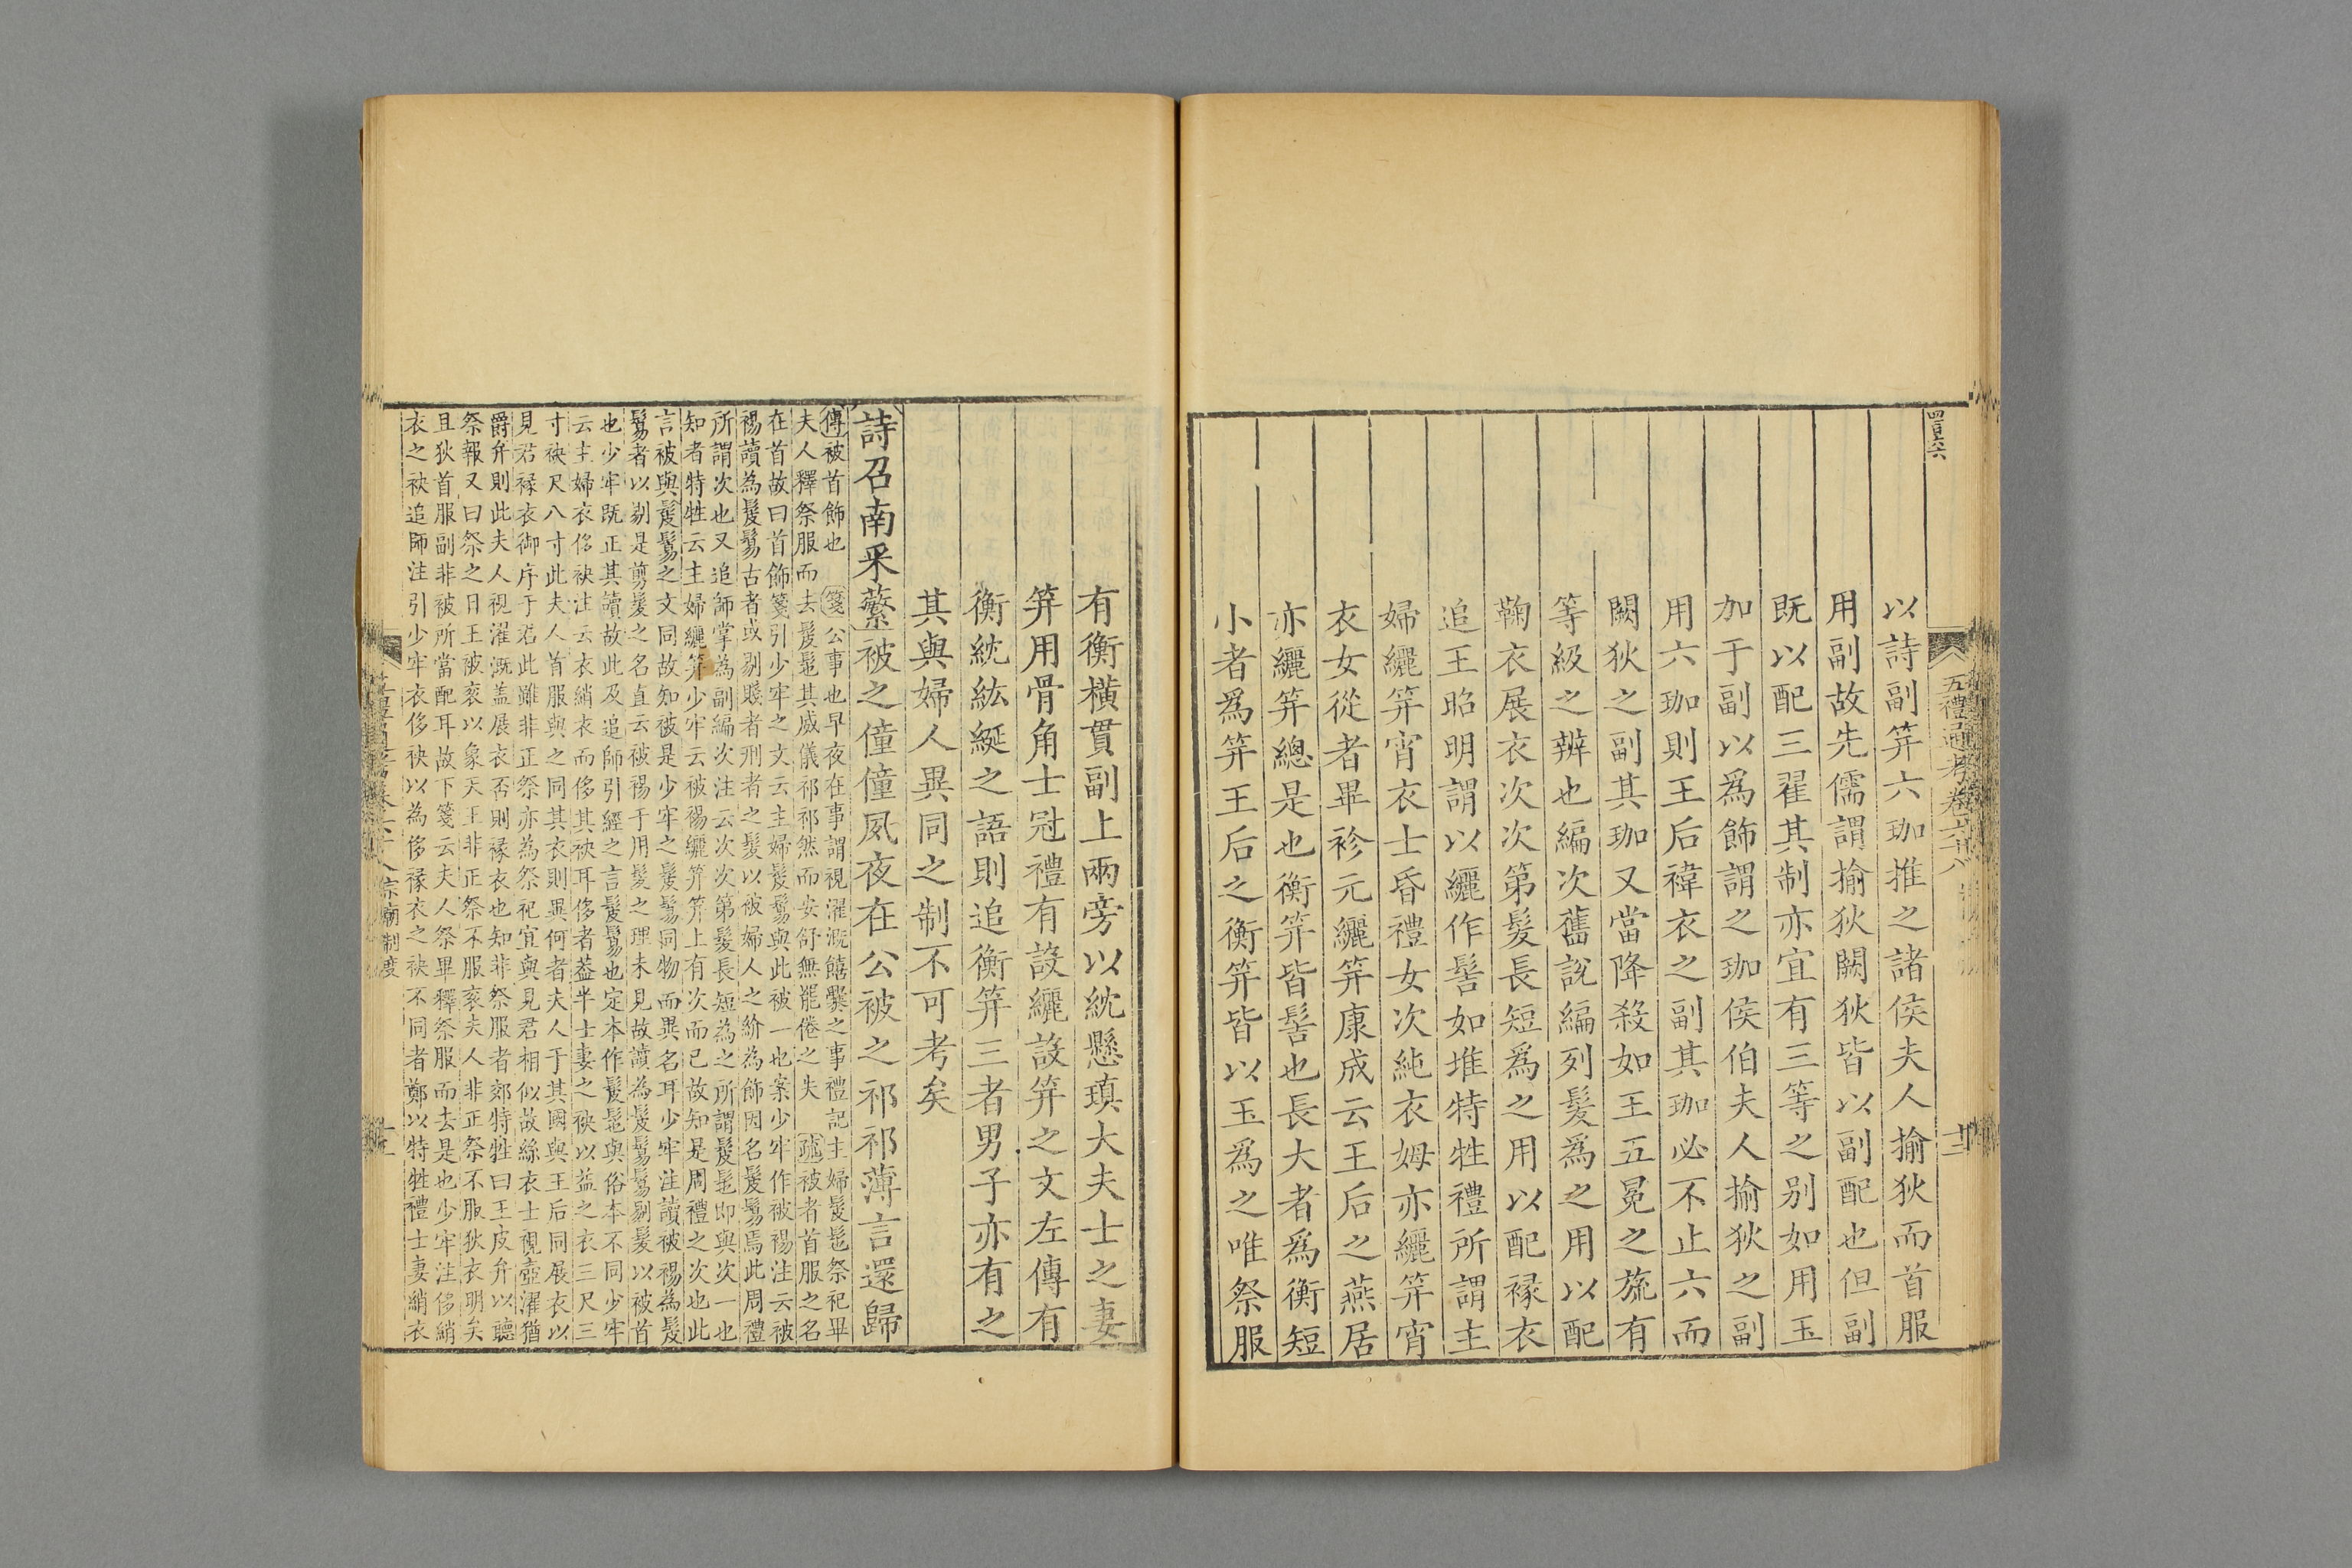 四百六六
五禮通考卷六十八
十三
以詩副笄六珈推之諸侯夫人揄狄而首服
用副故先儒謂揄狄闕狄皆以副配也但副
既以配三翟其制亦宜有三等之别如用玉
加于副以爲飾謂之珈侯伯夫人揄狄之副
用六珈則王后褘衣之副其珈必不止六而
闕狄之副其珈又當降殺如王五冕之旒有
等級之辨也編次舊說編列髮爲之用以配
鞠衣展衣次次第髮長短爲之用以配褖衣
追王昭明謂以纚作髻如堆特牲禮所謂主
婦纚笄宵衣士昏禮女次純衣姆亦纚笄宵
衣女從者畢袗元纚笄康成云王后之燕居
亦纚笄總是也衡笄皆髻也長大者爲衡短
小者爲笄王后之衡笄皆以玉爲之唯祭服
有衡横貫副上兩旁以紞懸瑱大夫士之妻
笄用骨角士冠禮有設纚設笄之文左傳有
衡紞紘綖之語則追衡笄三者男子亦有之
其與婦人異同之制不可考矣
詩召南采蘩被之僮僮夙夜在公被之祁祁薄言還歸
傳被首飾也 箋公事也早夜在事謂視濯溉饎爨之事禮記主婦髲髢祭祀畢
夫人釋祭服而去髲髢其威儀祁祁然而安舒無罷倦之失 疏被者首服之名
在首故曰首飾箋引少牢之文云主婦髲鬄與此被一也案少牢作被裼注云被
裼讀為髲鬄古者或剔賤者刑者之髮以被婦人之紒為飾因名髲鬄焉此周禮
所謂次也又追師掌為副編次注云次次第髮長短為之所謂髲髢即與次一也
知者特牲云主婦纚笄少牢云被裼纚笄笄上有次而已故知是周禮之次也此
言被與髲鬄之文同故知被是少牢之髲鬄同物而異名耳少牢注讀被裼為髲
鬄者以剔是剪髮之名直云被裼于用髮之理未見故讀為髲鬄鬄剔髮以被首
也少牢既正其讀故此及追師引經之言髲鬄也定本作髲髢與俗本不同少牢
云主婦衣侈袂注云衣綃衣而侈其袂耳侈者葢半士妻之袂以益之衣三尺三
寸袂尺八寸此夫人首服與之同其衣則異何者夫人于其國與王后同展衣以
見君褖衣御序于君此雖非正祭亦為祭祀宜與見君相似故絲衣士視壺濯猶
爵弁則此夫人視濯溉盖展衣否則褖衣也知非祭服者郊特牲曰王皮弁以聽
祭報又曰祭之日王被衮以象天王非正祭不服衮夫人非正祭不服狄衣明矣
且狄首服副非被所當配耳故下箋云夫人祭畢釋祭服而去是也少牢注侈綃
衣之袂追師注引少牢衣侈袂以為侈褖衣之袂不同者鄭以特牲禮士妻綃衣
宗廟制度